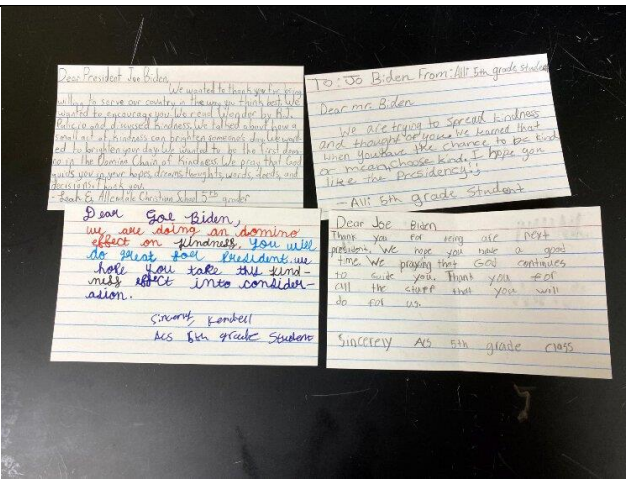 Dear President Joe Biden,
We wanted to thank you for being
willing to serve our country in the way you think best. We
wanted to encourage you. We read Wonder by R.J.
Palacio and discussed kindness. We talked about how a
small act of kindness can brighten someone's day. We want
ed to brighten your day. We wanted to be the first dom
o in The Domino Chain of Kindness. We pray that God
guids you in your hopes, dreams, thoughts, words, deeds, and
decisions. Thank you.
Allendale Christian School 5th grader
To: Jo Biden From: Alli 5th grade student
Dear mr. Biden
We are trying to spread kindness
and thought of you. We learned that
when you have the chance to be kind
or mean, choose kind. I hope you
like the Presidency,
- Alli 5th grade Student
Dear Goe Biden,
we are doing an domino
effect on kindness. You will
do great for President. we
hope you take this kind-
ness effect into consider-
asion.
Sincerly, Kendell
Acs 5th grade Student
Dear Joe Biden
Thank you for being are next
president. We hope you have a good
time. We praying that GOD continues
to guide you. Thank you for
all the stuff that you will
do for us.
Sincerely Acs 5th grade class